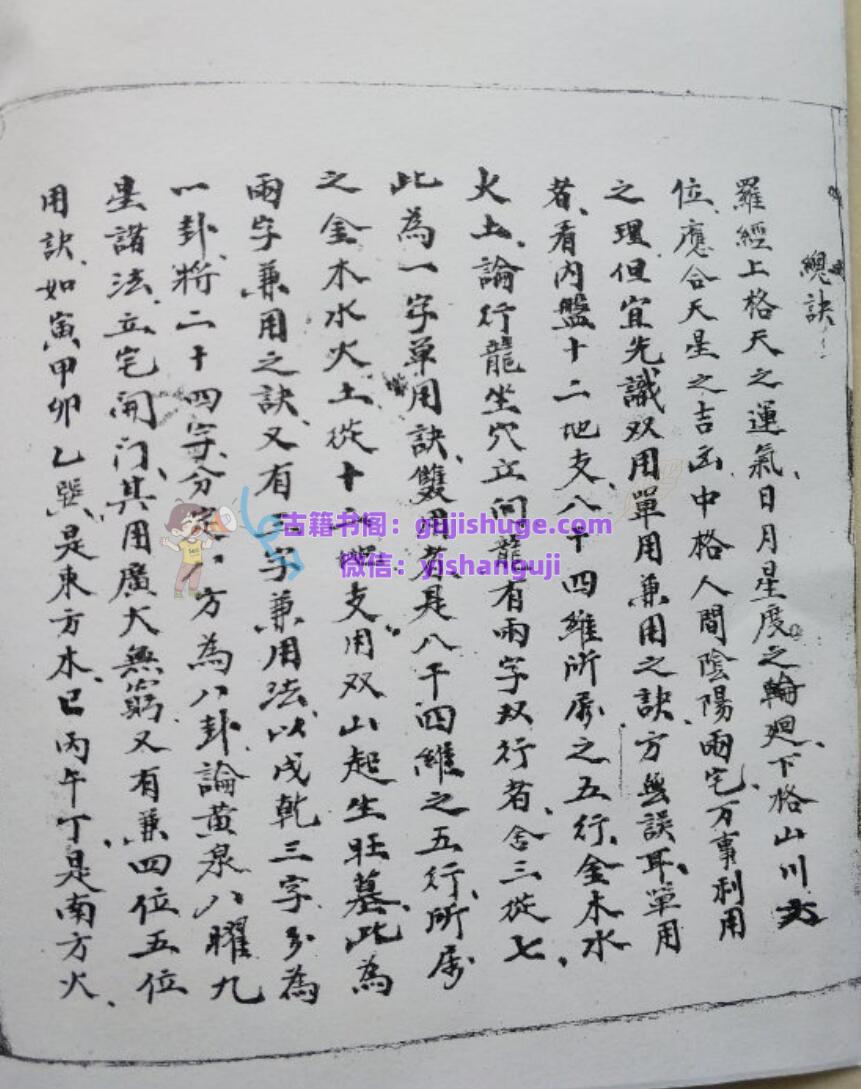 總訣
羅經上格天之運氣、日月星度之輪廻、下格山川方
位、應合天星之吉凶中格人間陰陽兩宅、万事利用
之理但宜先識双用單用兼用之訣、方無誤耳、單用
者、看内盤十二地支、八干四維所屬之五行、金木水
火土、論行龍坐穴立向、龍有兩字双行者、舍三從七、
此為一字單用訣、雙用者、是八干四維之五行、所屬
之金木水火土從十二地支、用双山起生旺墓、此為
兩字兼用之訣、又有三字兼用法、以戌乾三字分為
一卦、將二十四字、分定八方為八卦、論黄泉八曜九
星諸法、立宅開门、其用廣大無窮、又有兼四位五位
用訣、如寅甲卯乙巽、是東方木、巳丙午丁是南方火、
古籍书阁：gujishuge.com
微信：yishanguji